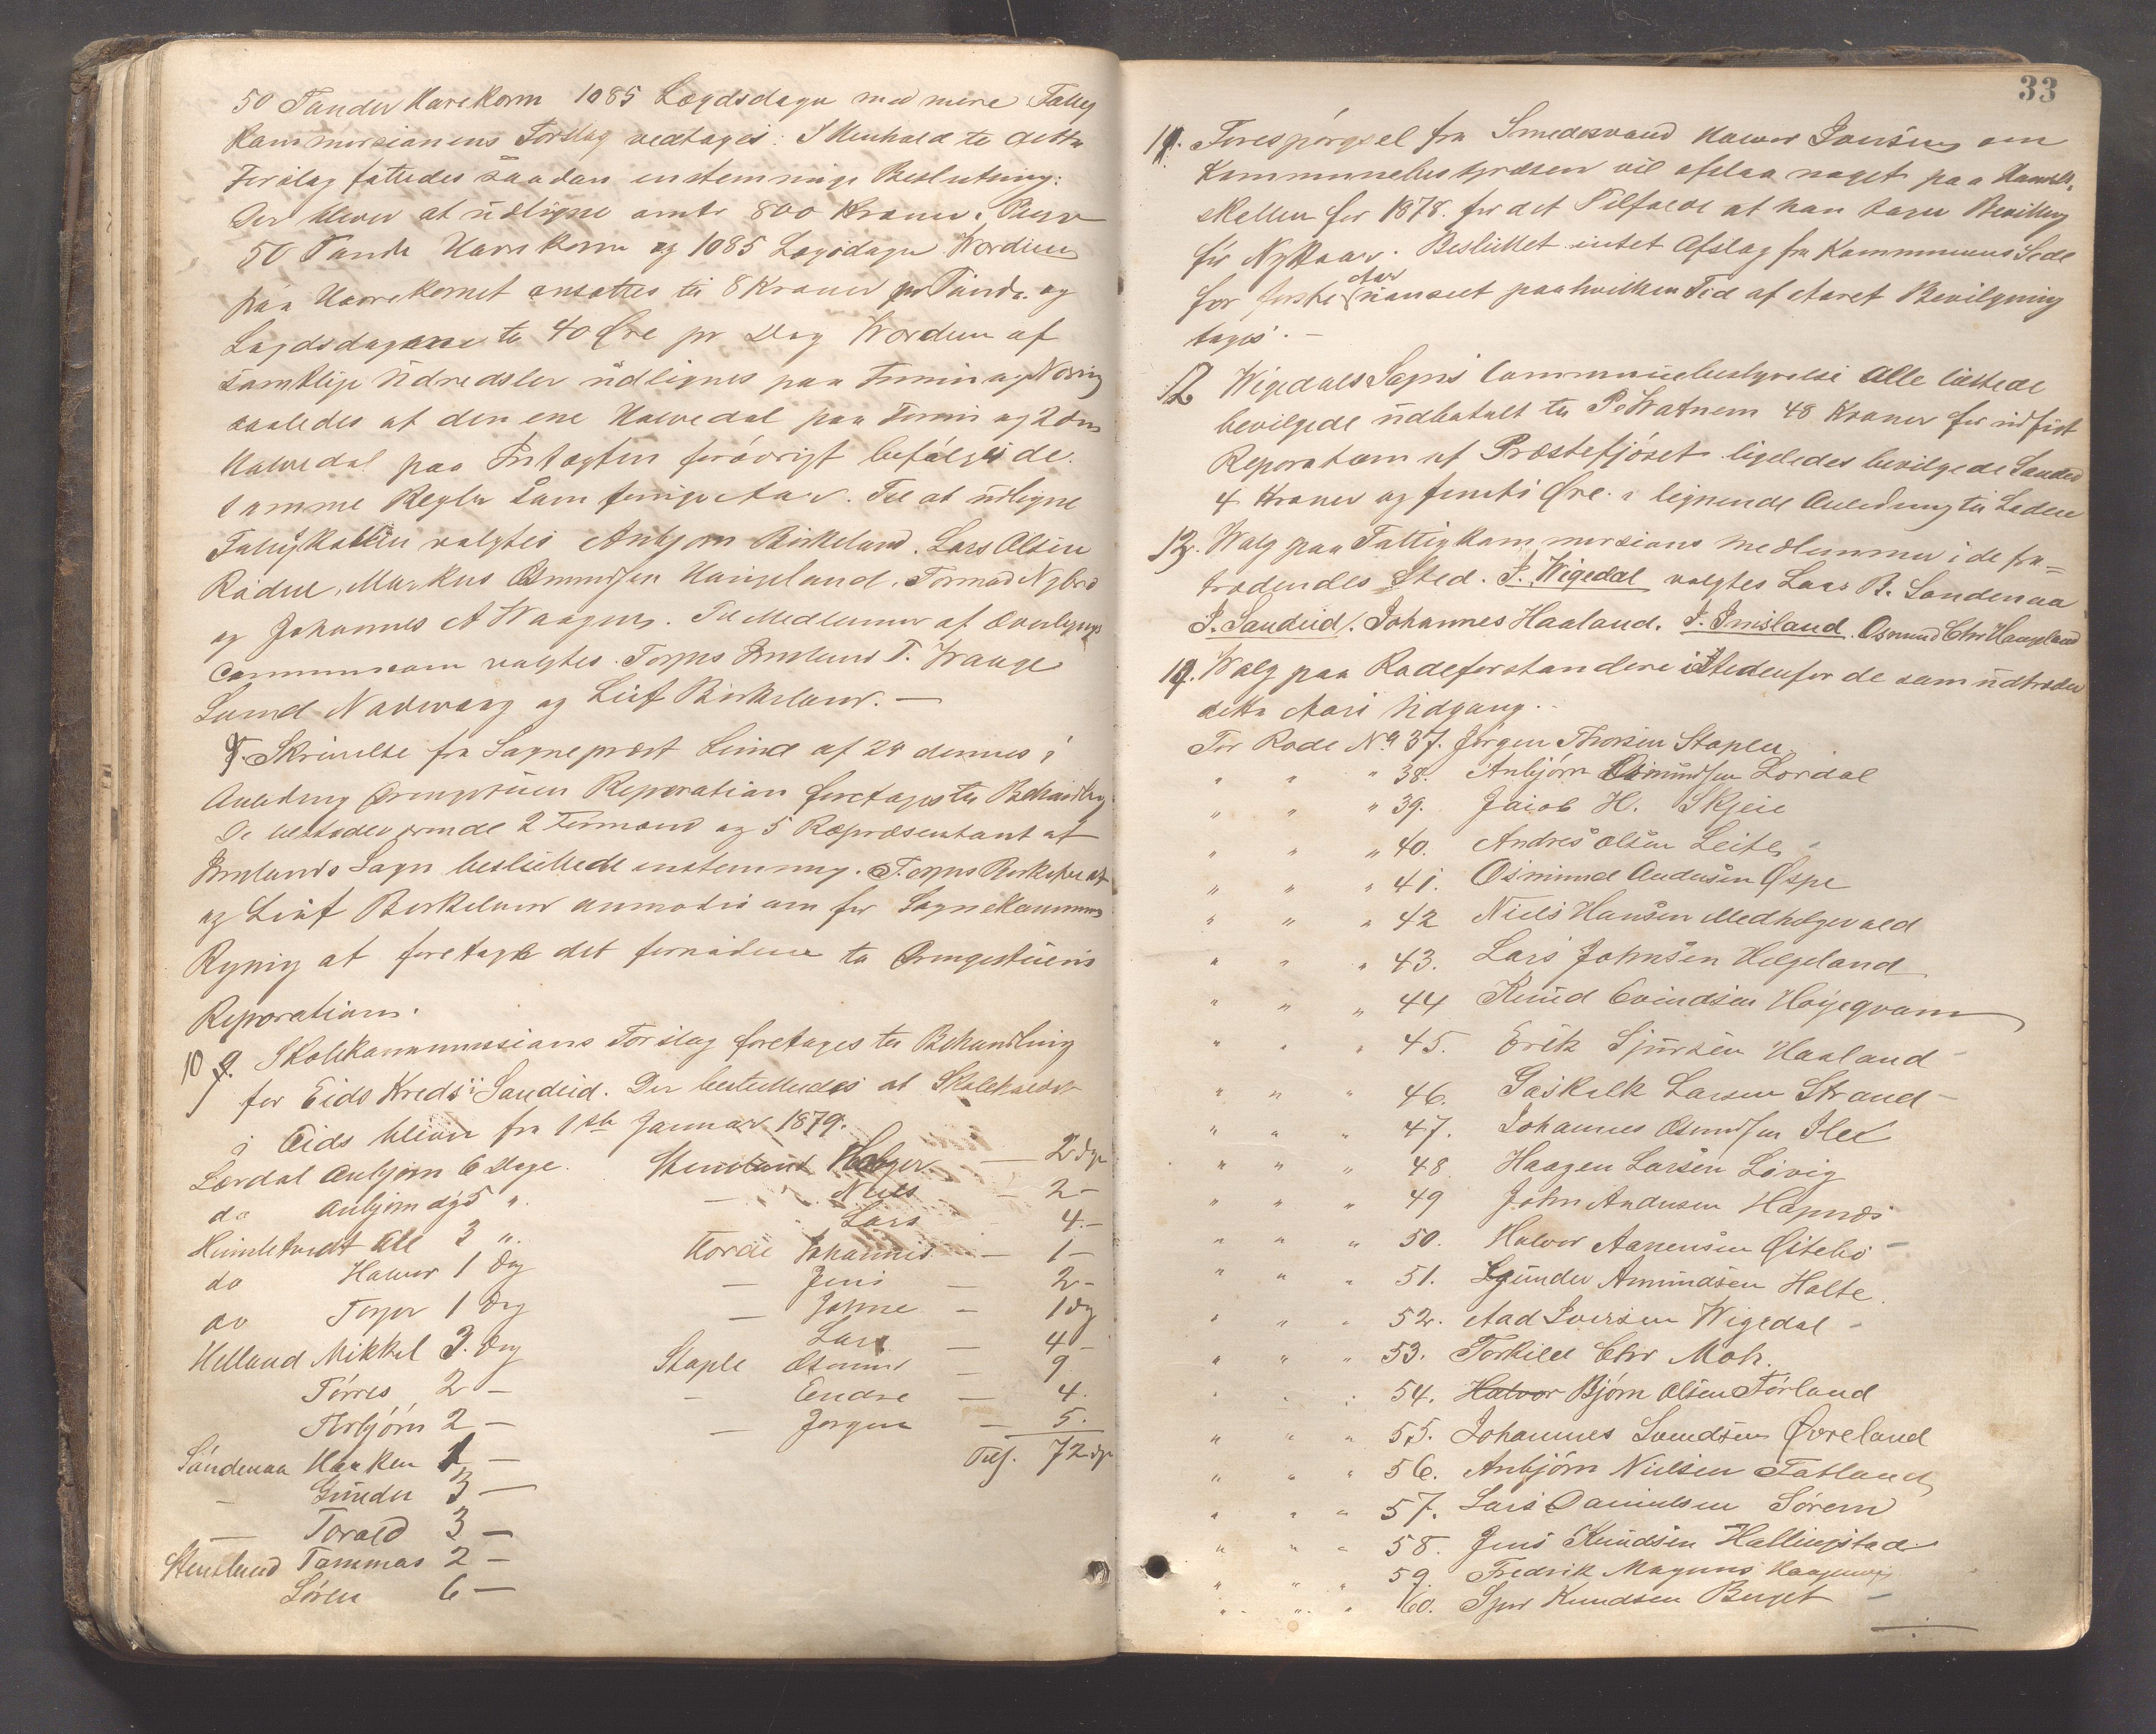 50 Tønder Havrekorn 1085 Lægdsdage med mere Fattig
Kommissionens Forslag vedtages. I Henhold til dette
Forslag fattedes saadan enstemmige Beslutning:
Der bliver at udligne 800 Kroner
50 Tønder Havrekorn og 1085 Lægdsdage Wærdien
paa Havrekornet ansattes til 8 Kroner pr Tønde og
Lægdsdagene til 40 Øre pr Dag Wærdien af
samtlige Udredsler udlignes paa Formue og Næring
saaledes at den ene Halvedel paa Formue og 2den
Halvedel paa Indtægten forøvrigt befølges de
samme Regler som forrige Aar. Til at udligne
Fattigskatten valgtes Anbjørn Birkeland, Lars Olsen
Markus Osmundsen Haugeland, Tormod Nybrø
og Johannes A Waagen. Til Medlemmer af Overlignings
Commissionen valgtes Torges Imsland T. Wraage
Svend Nadwaag og Leif Birkeland. —
9. Skrivelse fra Sognepræst Lund af 28 dennes i
Anledning Reparation foretages til Behandling
De tilstedeværende 2 Formænd og 5 Repræsentant af
Imslands Sogn besluttede enstemmig.
og Leif Birkeland anmodes om for Sognekommunens
Regning at foretage det fornødne til
Reparation.
10 Skolekommissions Forslag foretages til Behandling
for Eids Kreds i Sandeid. Der besluttedes at Skoleholdet
i Eids bliver fra 1ste Januar 1879.
Lærdal Anbjørn 6 Dage. Stenslund Holger — 2 Dge
do Anbjørn 5 " — Niels — 2 –
Lars 4. –
Heimletvedt Ole 3 " Horde Johannes — 1 –
do Halvor 1 Dag — Jens — 2 –
do Torger 1 Dag — Johne — 1 Dg
Lars — 4 –
Helland Mikkel 3. Dag Staple Osmund — 9
Tørres 2 — — Endre — 4.
Torbjørn 2 — — Jørgen — 5.
Søndenaa Haaken 1 — Tils. 72 Dge
— Gunder 3 —
— Torald 3 —
Stenslund Tommas 2 —
Søren 6 —
33
11. Forespørgsel fra Smedesvand Halvor Jonsen om
Kommunebestyrelsen vil afslaa noget paa Handels-
skatten for 1878. for det Tilfælde at han tager Bevilling
før Nyttaar. Besluttet intet Afslag fra Kommunens Side
for første Aar uanseet paa hvilken Tid af Aaret Bevilgning
tages. —
12 Wigedals Sogns Communebestyrelse alle tilstede
bevilgede udbetalt til P. Watnem 48 Kroner for udført
Reparation af Præstefjøset ligeledes bevilgede Sandeid
4 Kroner og femti Øre i lignende Anledning til Laden
13. Walg paa Fattigkommissions Medlemmer i de fra=
trædendes Sted. I. Wigedal valgtes Lars B. Søndenaa
I. Sandeid. Johannes Haaland. I. Imsland. Osmund Chr Haugeland
14. Walg paa Rodeforstandere istedenfor de som udtræder
dette Aars Udgang.
For Rode No 37. Jørgen Thorsen Staple
" " " 38. Anbjørn Osmundsen Lørdal
" " " 39. Jacob H. Skjeie
" " " 40. Andres Olsen Leite
" " " 41. Osmund Andersen Øspe
" " " 42 Niels Hansen Medholgevald
" " " 43. Lars Johnsen Helgeland
" " " 44 Knud Evindsen Høiegvam
" " " 45. Erik Sjursen Haaland
" " " 46. Gaskelk Larsen Strand –
" " " 47. Johannes Osmundsen Iled
" " " 48 Haagen Larsen Løvig
" " " 49 John Andersen Hapnæs
" " " 50. Halvor Aanensen Østebø –
" " " 51. Gunder Amundsen Holte
" " " 52. Aad Iversen Wigedal –
" " " 53. Torkild Chr Moh.
" " " 54. Halvor Bjørn Olsen Førland
" " " 55. Johannes Svendsen Øvreland
" " " 56. Anbjørn Nielsen Fatland
" " " 57. Lars Danielsen Sørem
" " " 58. Jens Knudsen Hallingstad
" " " 59. Fredrik Magnus
" " " 60. Sjur Knudsen Berget –